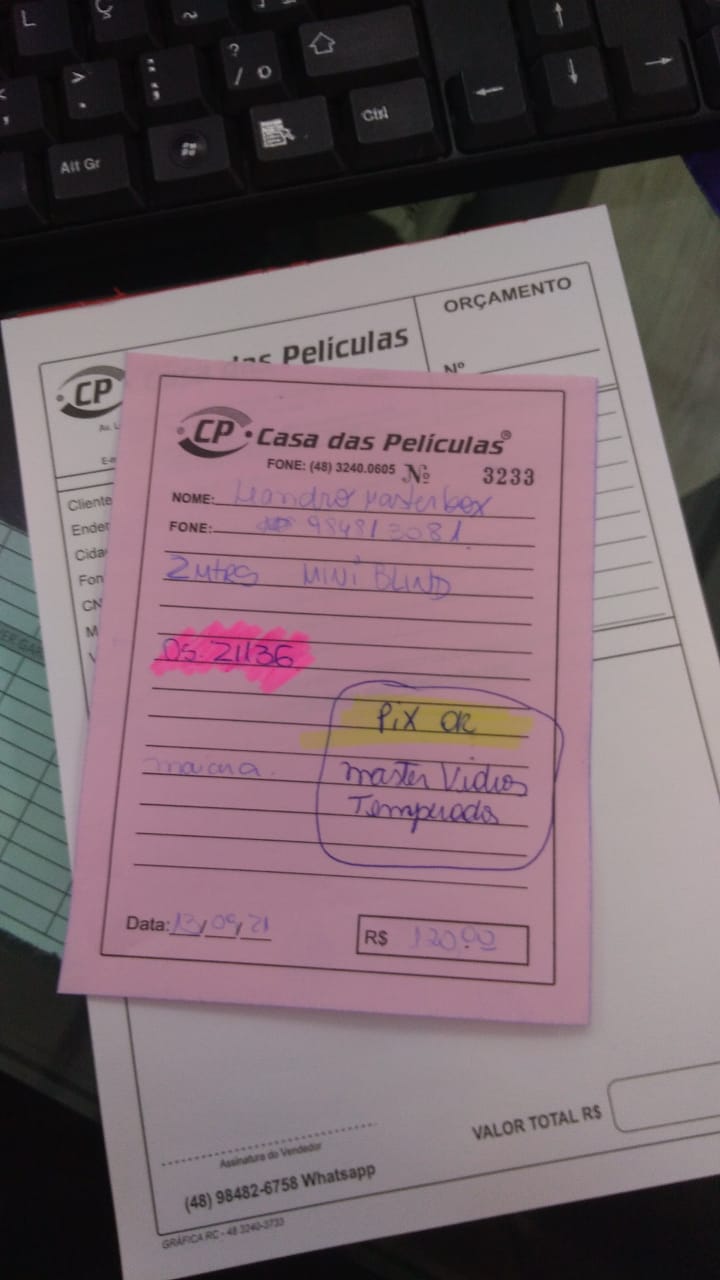 L Ç ~
> . : ; ? / °
Alt Gr Ctrl
ORÇAMENTO
Nº
das Películas
CP
Cliente
Ender
Cida
Fon
CN
CP Casa das Películas®
FONE: (48) 3240.0605 Nº 3233
NOME: Leandro Masterbox
FONE: 98481 3081
2 Mtrs MINI BLIND
OS. 21136
Pix OK
Master Vidros
Temperados
Data: 13/09/21
R$ 120,00
VALOR TOTAL R$
Assinatura do Vendedor
(48) 98482-6758 Whatsapp
GRÁFICA RC - 48 3240-3733